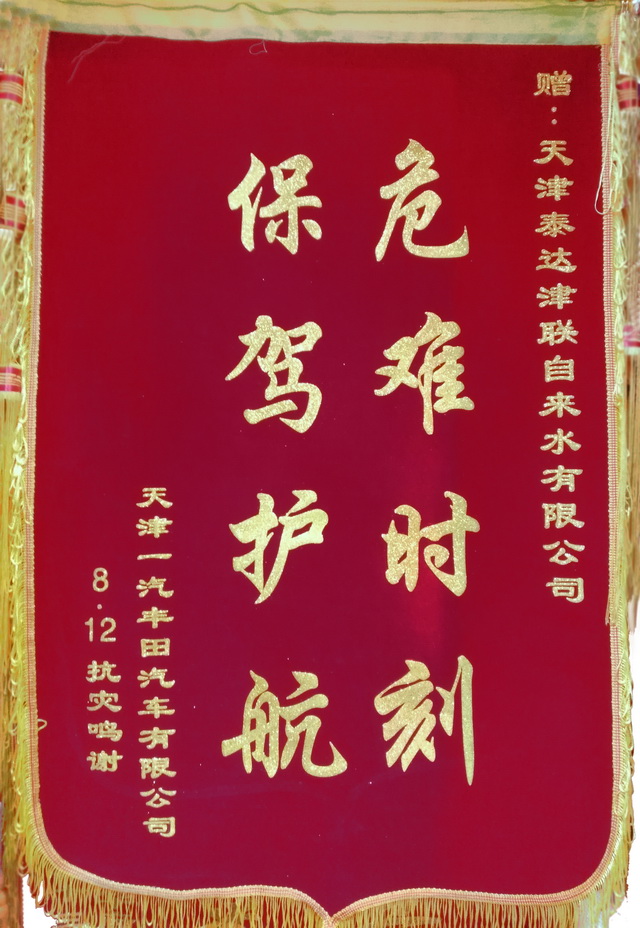 赠：天津泰达津联自来水有限公司
危难时刻
保驾护航
天津一汽丰田汽车有限公司
8·12抗灾鸣谢